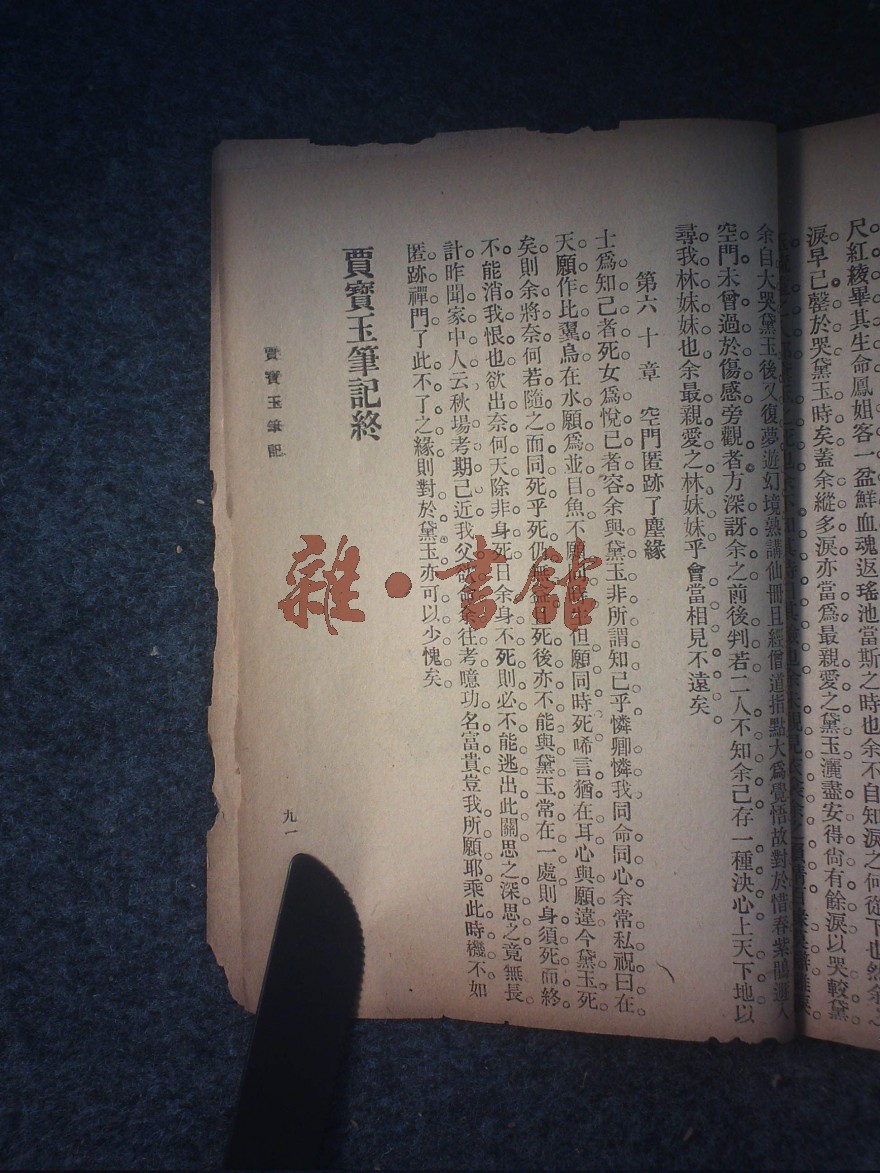 尺紅綾畢其生命鳳姐客一盆鮮血魂返瑤池當斯之時也余不自知淚之何從下也然余之
淚早已罄於哭黛玉時矣蓋余縱多淚亦當爲最親愛之黛玉灑盡安得尙有餘淚以哭較黛
余自大哭黛玉後又復夢遊幻境熟講仙冊且經僧道指點大爲覺悟故對於惜春紫鵑遯入
空門未曾過於傷感旁觀者方深訝余之前後判若二人不知余己存一種決心上天下地以
尋我林妹妹也余最親愛之林妹妹乎會當相見不遠矣
第六十章 空門匿跡了塵緣
士爲知己者死女爲悅已者容余與黛玉非所謂知己乎憐卿憐我同命同心余常私祝曰在
天願作比翼鳥在水願爲並目魚不願同時生但願同時死唏言猶在耳心與願違今黛玉死
矣則余將奈何若隨之而同死乎死仍無益且死後亦不能與黛玉常在一處則身須死而終
不能消我恨也欲出奈何天除非身死日余身不死則必不能逃出此關思之深思之竟無長
計昨聞家中人云秋場考期己近我父欲命余往考噫功名富貴豈我所願耶乘此時機不如
匿跡禪門了此不了之緣則對於黛玉亦可以少愧矣
賈寶玉筆記終
賈寶玉筆記
九一
雜·書館